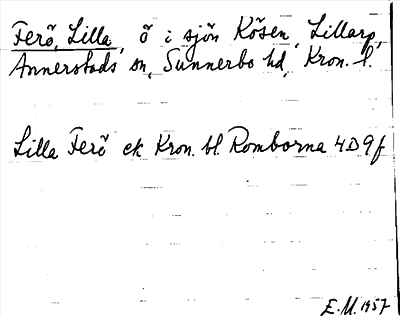 Ferö, Lilla, ö i sjön Kösen, Lillarp,
Annerstads sn, Sunnerbo hd, Kron. l.
Lilla Ferö ek Kron. bl. Romborna 4D9f
E.M. 1957